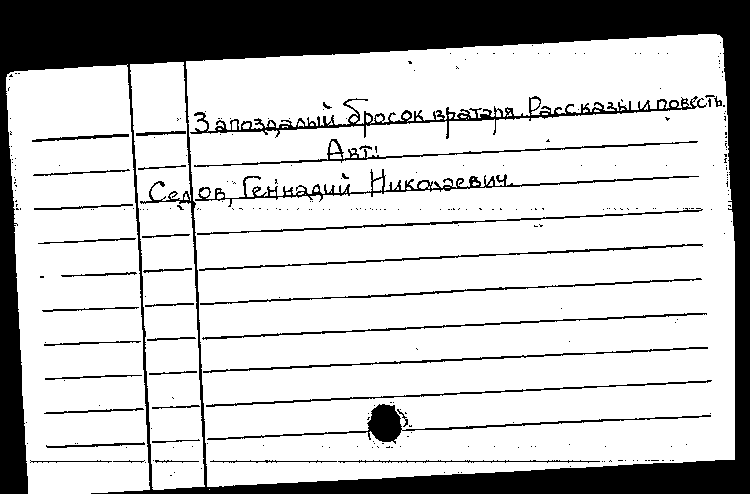 Запоздалый бросок вратаря. Рассказы и повесть.
Авт.:
Седов, Геннадий Николаевич.